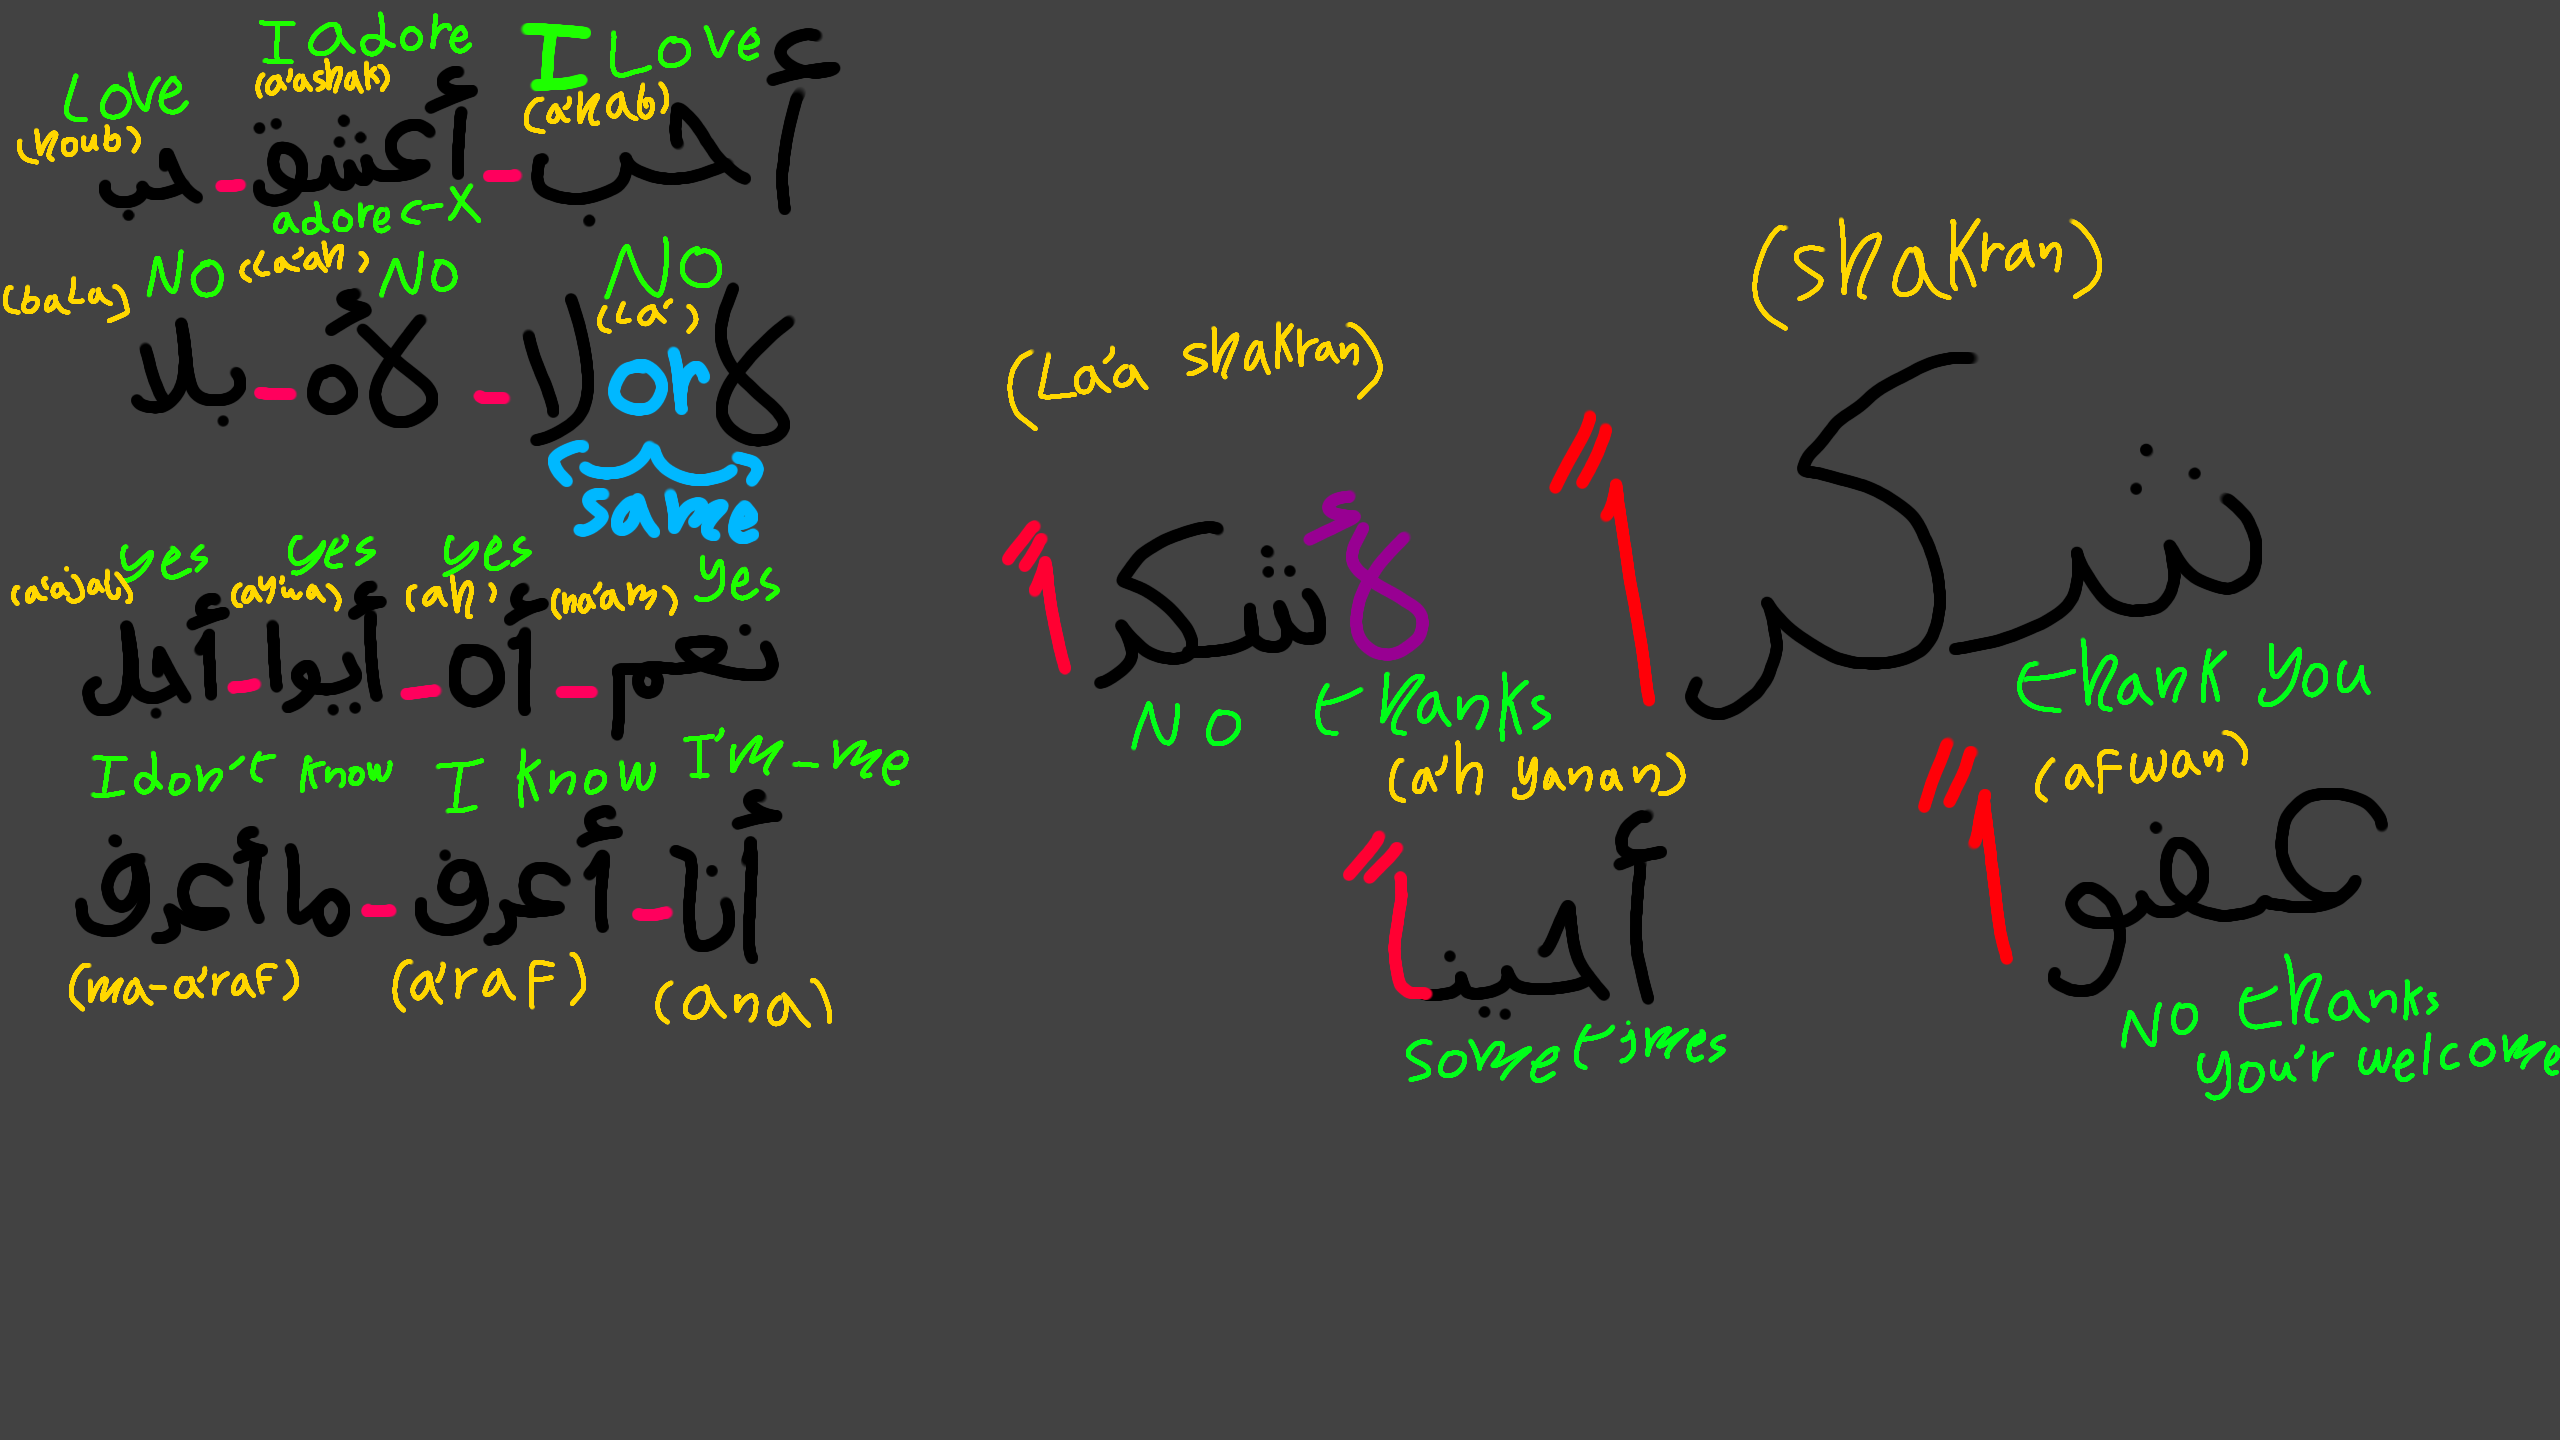 I Love
(a'hab)
أحب - أعشق - حب
I adore
(a'ashak)
adore <-X
Love
(houb)
No
(La')
لا or لا - لأه - بلا
same
No
(La'ah)
No
(baLa)
yes
(na'am)
نعم - أه - أيوا - أجل
yes
(ah)
yes
(ay'wa)
yes
(a'ajal)
I'm_me
أنا - أعرف - ما أعرف
(ana)
I know
(a'raf)
I don't know
(ma-a'raf)
(shakran)
شكراً
thank you
(La'a shakran)
لأ شكراً
No thanks
(afwan)
عفواً
No thanks
you'r welcome
(a'h yanan)
أحيناً
sometimes